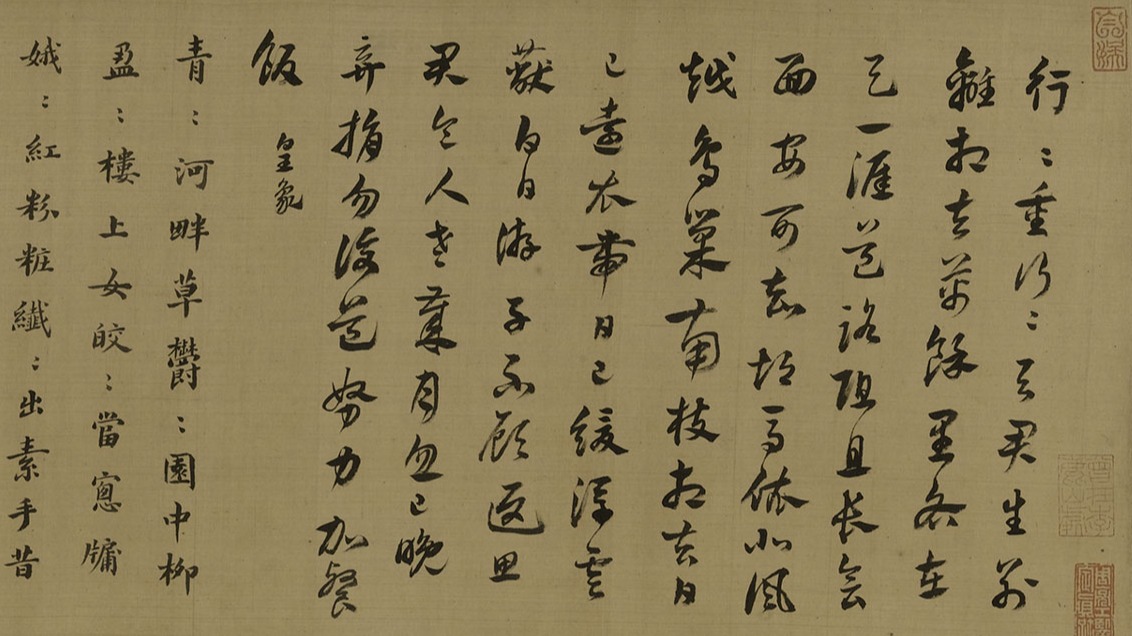 行〻重行〻与君生别
離相去萬餘里各在
天一涯道路阻且長會
面安可知胡馬依北風
越鳥巢南枝相去日
已遠衣帶日已緩浮雲
蔽白日游子不顧返思
君令人老歲月忽已晚
弃捐勿復道努力加餐
飯 皇象
青〻河畔草鬱〻園中柳
盈〻樓上女皎〻當窻牖
娥〻紅粉粧纖〻出素手昔